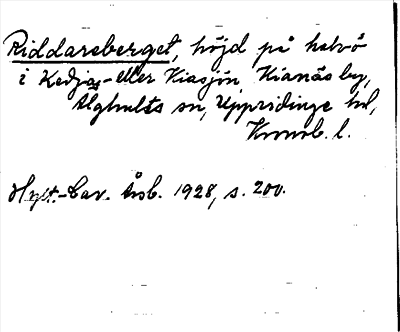 Riddareberget, höjd på halvö
i Kedja- eller Kiasjön Kianäs by,
Älghults sn, Uppvidinge hd,
Kronob. l.
Hylt.-Cav. Årsb. 1928, s. 200.